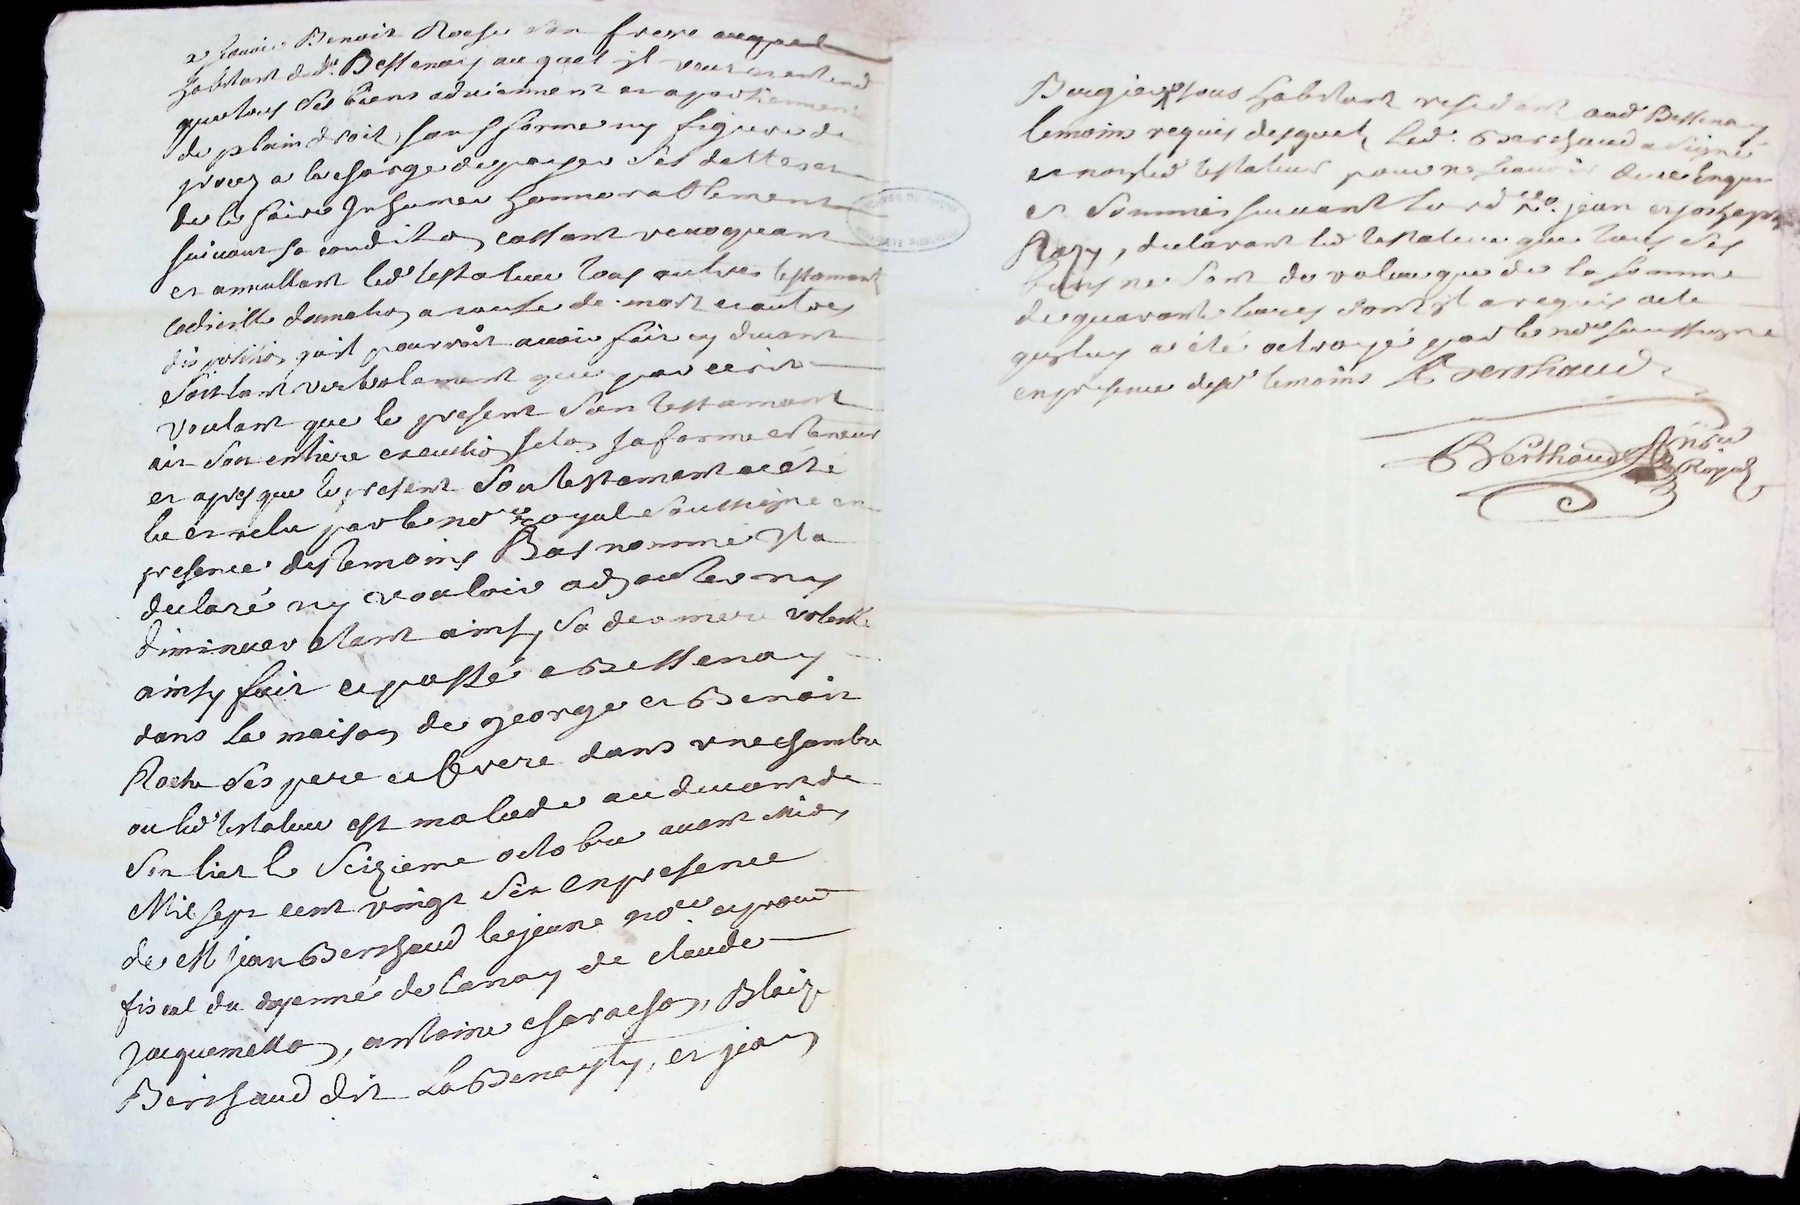 a scavoir Benoit Roche son frere auquel
habitant dud. Bessenay auquel il veut et entend
que tous ses biens adviennent et apartiennent
de plain droit sans forme ny figure de
procez a la charge de payer ses dettes et
de le faire Inhumer honnorablement
suivant sa condition cassant revoquant
et annullant led testateur tous autres testament
codicille donnation a cause de mort et autres
disposition quil pourroit avoir fait cy devant
soit tant verbalement que par ecrit
voulant que le present son testament
ait son entiere execution selon sa forme et teneur
et apres que le present son testament a été
lu et relu par le nore royal soussigné en
presence des temoins Bas nommé Il a
declaré ny vouloir adjouter ny
diminuer etant ainsy sa derniere volonté
ainsy fait et passé a Bessenay
dans la maison de george et Benoit
Roche ses pere et frere dans une chambre
ou led testateur est malade au devant de
son lict le seizieme octobre avant midy
Mil sept cent vingt six en presence
de M jean Berthaud le jeune nore et procu
fiscal du doyenné de tanay de claude
Jacquemetton, antoine charachon, Blaize
Berthaud dit La Benaysty, et jean
Bugier tous habitant resident aud Bessenay
temoins requis desquels led. Berthaud a signé
et non led testateur pour ne scavoir de ce Enquis
et sommés suivant lord ce. jean et joseph
Razy, declarant led testateur que tous ses
biens ne sont de valeur que de la somme
de quarante livres dont il a requis acte
qui luy a été octroyé par le nore soussigné
en presence desd temoins Berthaud
Berthaud nore
Royal